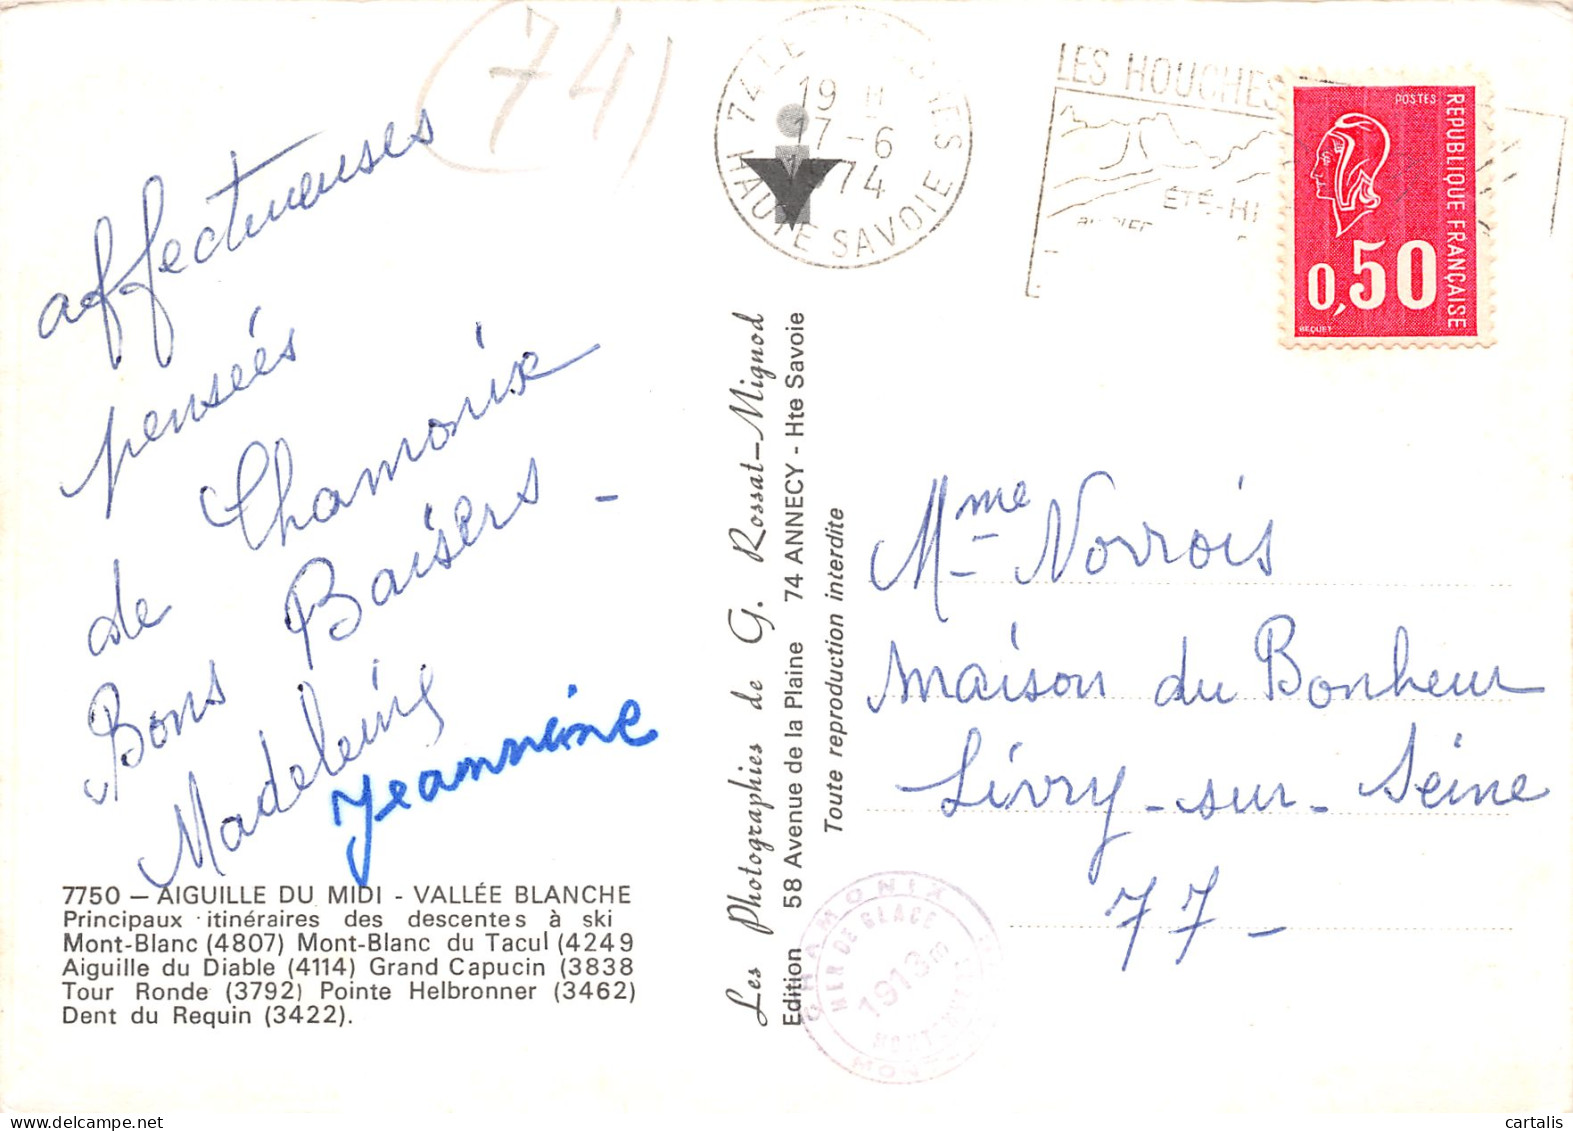 (74)
affectueuses
pensées
de Chamonix
Bons Baisers -
Madeleine
Jeannine
7750 — AIGUILLE DU MIDI - VALLÉE BLANCHE
Principaux itinéraires des descentes à ski
Mont-Blanc (4807) Mont-Blanc du Tacul (4249
Aiguille du Diable (4114) Grand Capucin (3838
Tour Ronde (3792) Pointe Helbronner (3462)
Dent du Requin (3422).
Les Photographies de G. Rossat-Mignod
Edition 58 Avenue de la Plaine 74 ANNECY - Hte Savoie
Toute reproduction interdite
74 LE
HAUTE SAVOIE
19 H
17-6
LES HOUCHES
ÉTÉ-HI
POSTES
REPUBLIQUE FRANÇAISE
0,50
BEQUET
Mme Norrois
maison du Bonheur
Livry-sur-Seine
77-
CHAMONIX
MER DE GLACE
1913m
cartalis